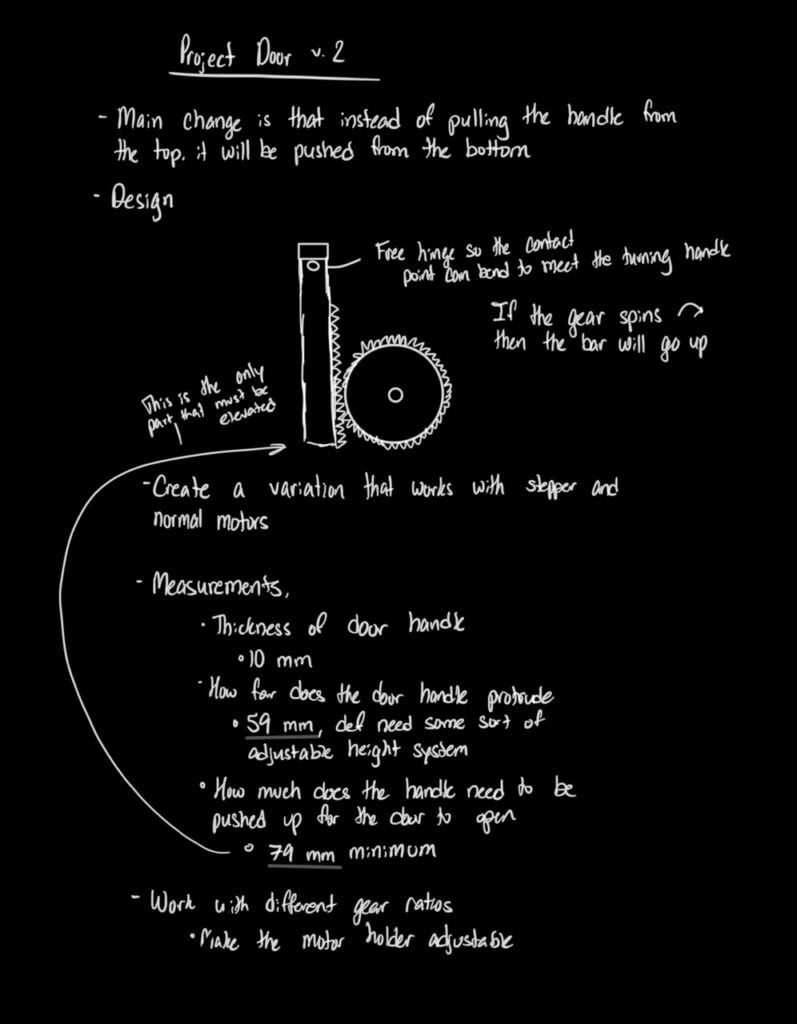 Project Door v. 2
- Main change is that instead of pulling the handle from
the top. it will be pushed from the bottom
- Design
Free hinge so the contact
point can bend to meet the turning handle
If the gear spins ↷
then the bar will go up
This is the only
part that must be
elevated
- Create a variation that works with stepper and
normal motors
- Measurements,
• Thickness of door handle
• 10 mm
• How far does the door handle protrude
• 59 mm, def need some sort of
adjustable height system
• How much does the handle need to be
pushed up for the door to open
• 79 mm minimum
- Work with different gear ratios
• Make the motor holder adjustable